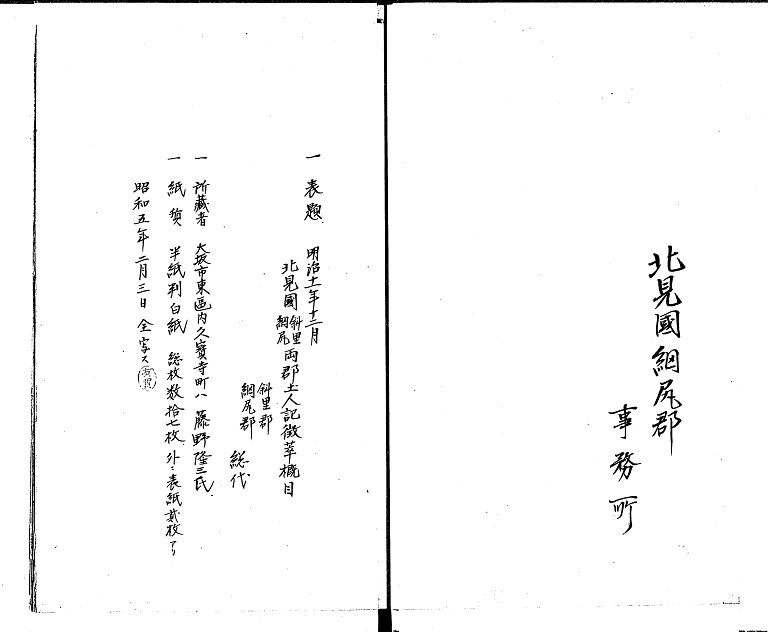 北見國網尻郡
事務所
一 表題 明治十一年十二月
北見國斜里網尻両郡土人記徴萃概目
斜里郡
網尻郡 総代
一 所藏者 大坂市東區内久寳寺町八 藤野隆三氏
一 紙質 半紙判白紙 総枚数拾七枚 外ニ表紙貳枚アリ
昭和五年二月三日 全写ス